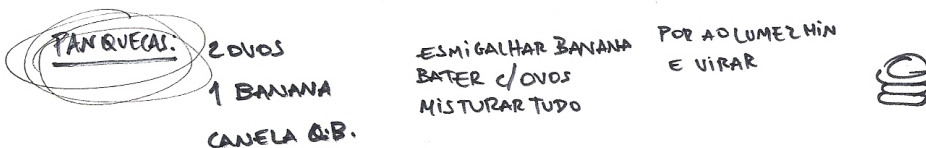 PANQUECAS:
2 OVOS
1 BANANA
CANELA Q.B.
ESMIGALHAR BANANA
BATER C/OVOS
MISTURAR TUDO
POR AO LUME 2 MIN
E VIRAR